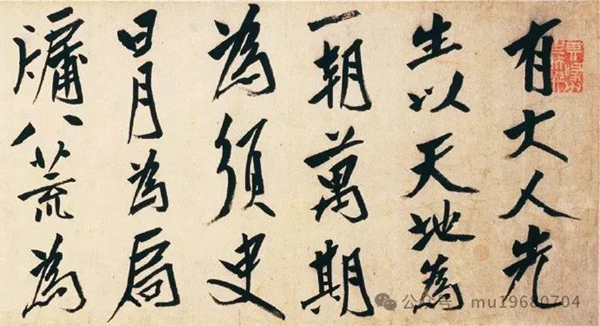 有大人先
生以天地為
一朝萬期
為須臾
日月為扃
牖八荒為
公众号 · mu19680704